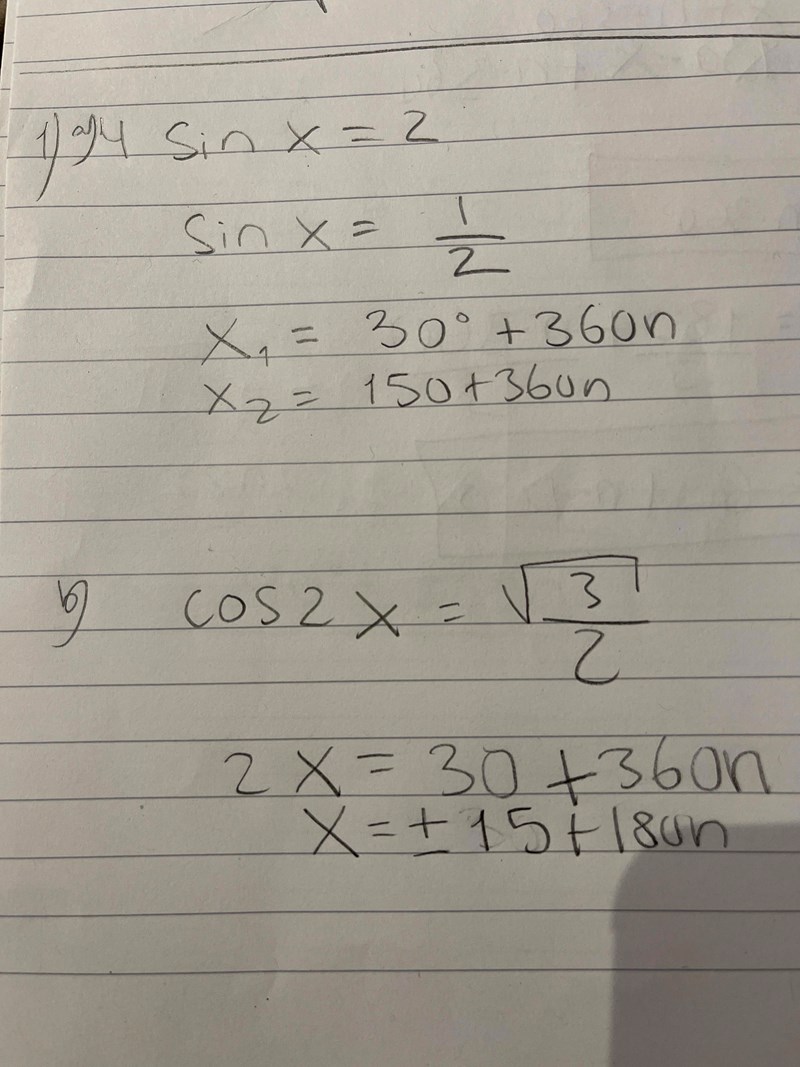 1) a) 4 sin x = 2
sin x = 1/2
x₁ = 30° + 360n
x₂ = 150 + 360n
b) cos 2x = √3/2
2x = 30 + 360n
x = ± 15 + 180n